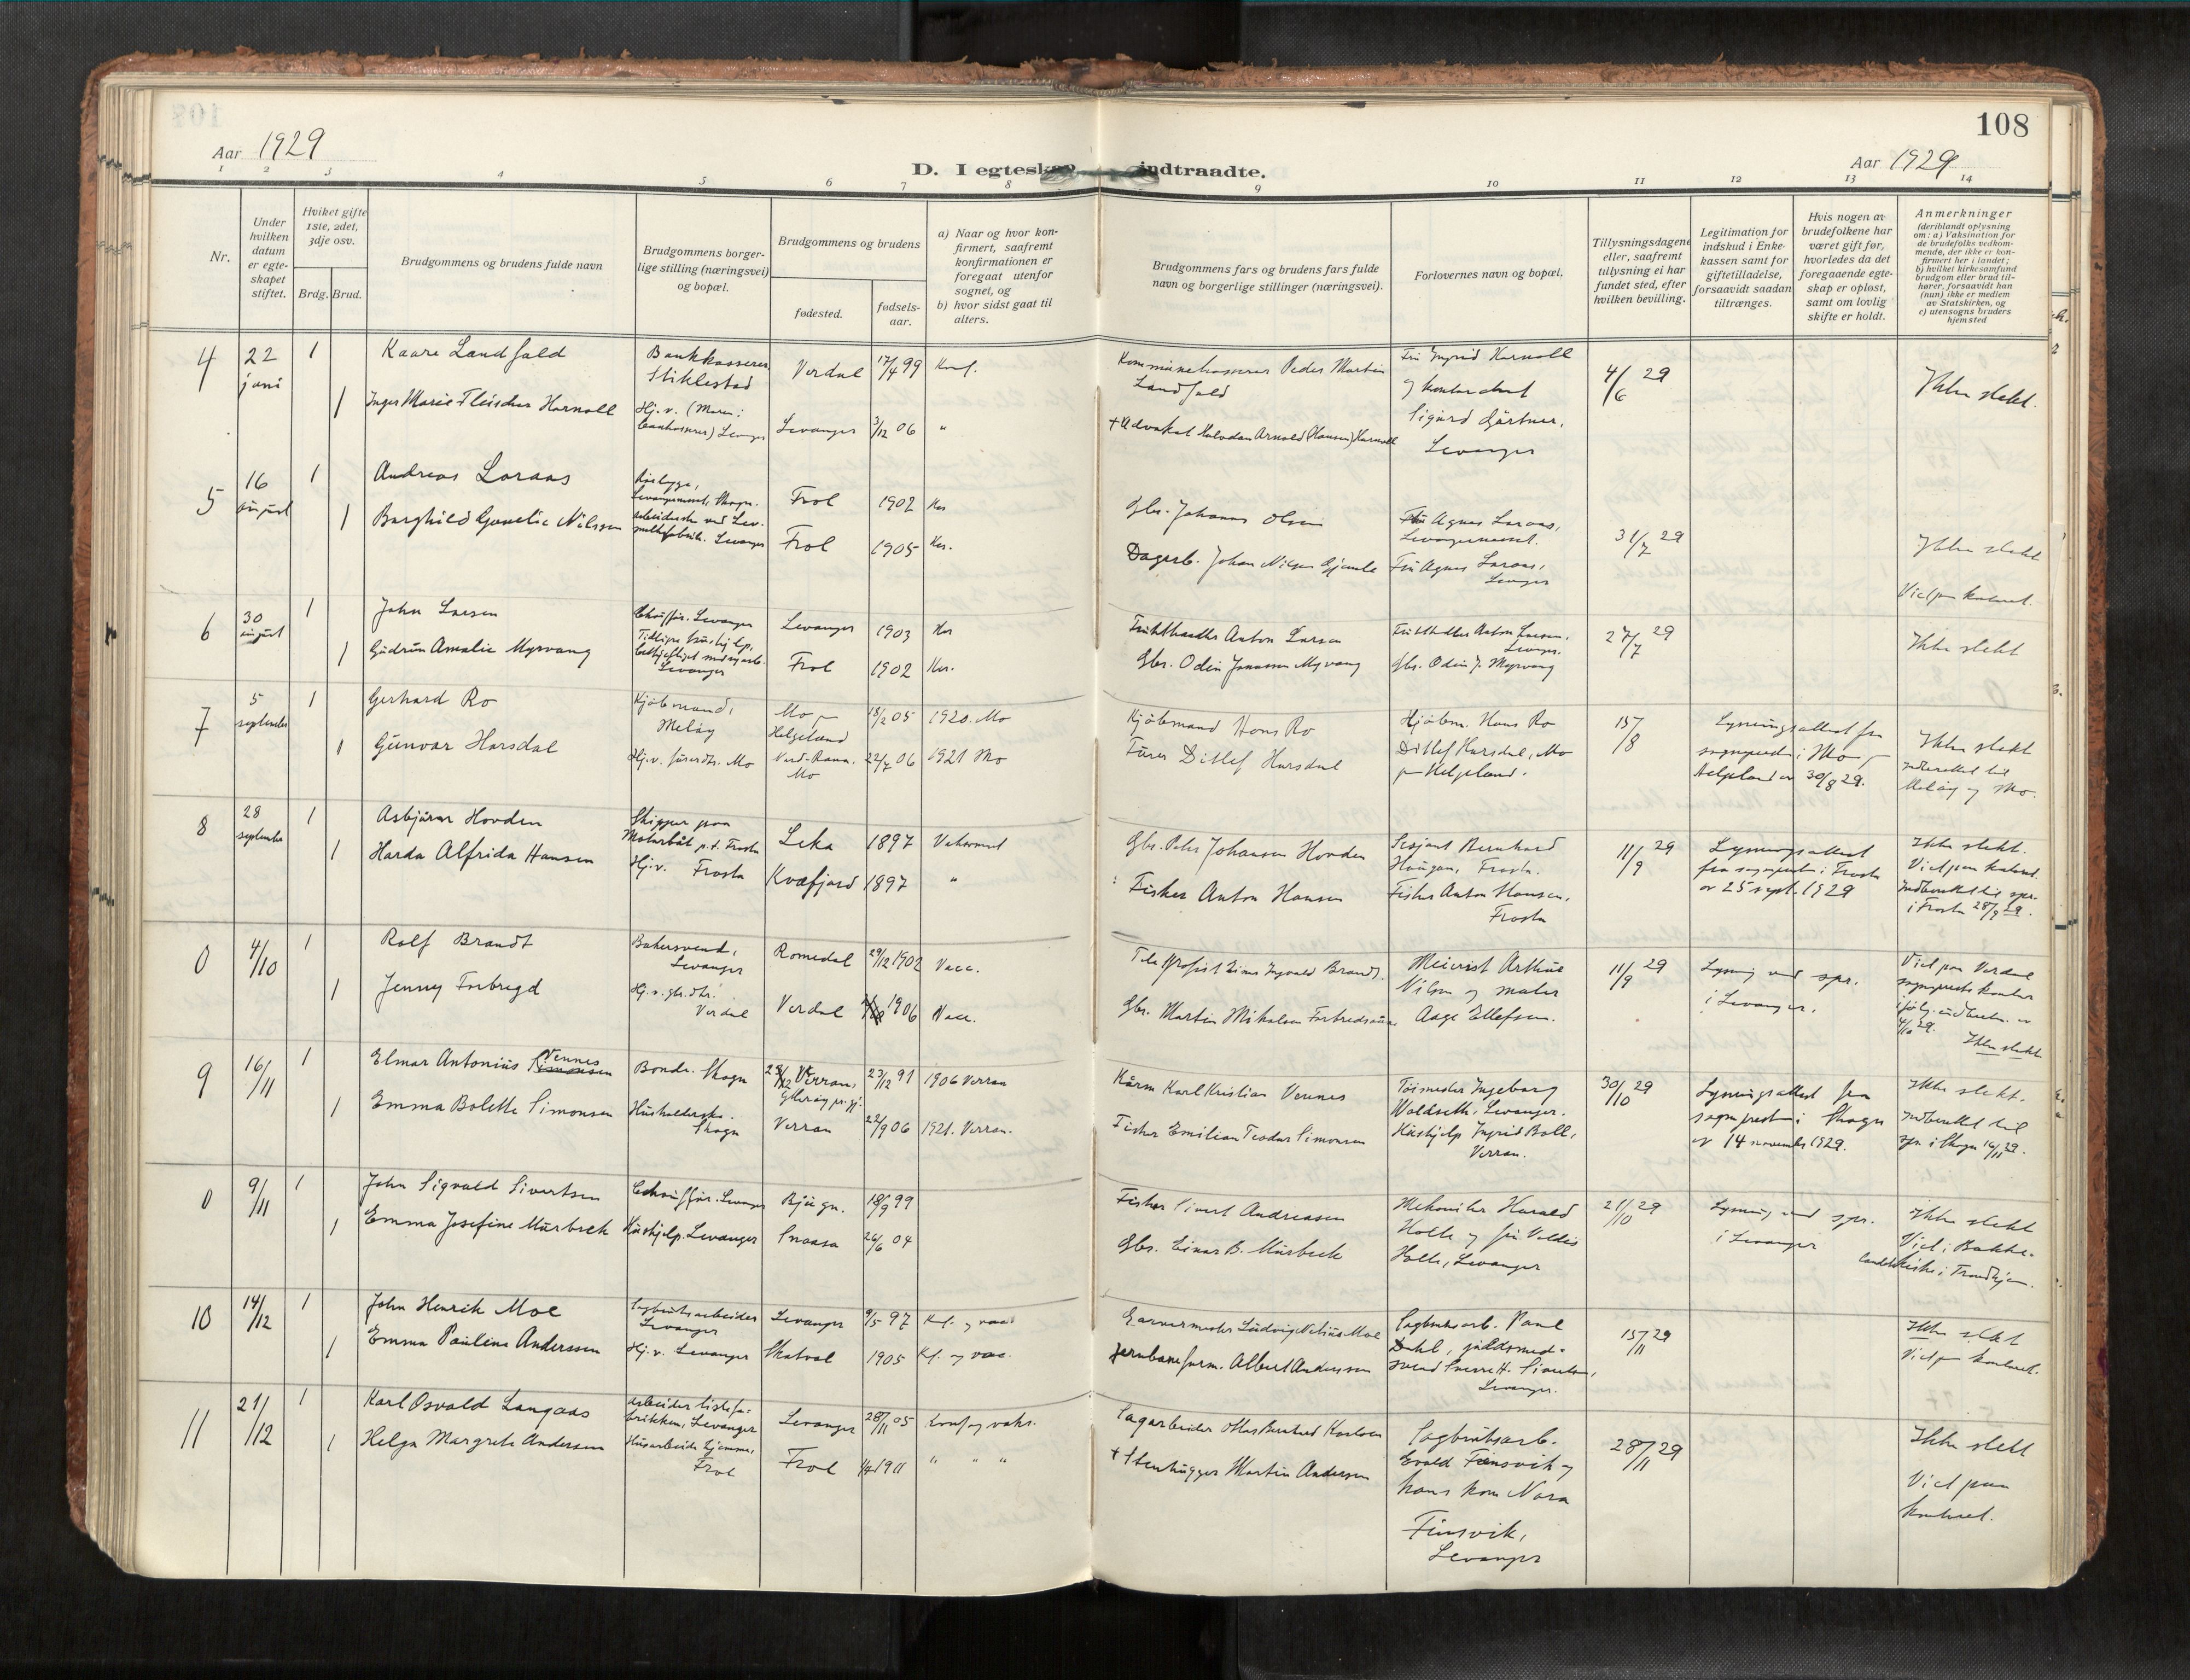 108
Aar 1929
D. I egteska indtraadte.
Aar 1929
1 2 3 4 5 6 7 8 9 10 11 12 13 14
Nr.
Under hvilken datum er egteskapet stiftet.
Hviket gifte 1ste, 2det, 3dje osv.
Brdg. Brud.
Brudgommens og brudens fulde navn
Brudgommens borgerlige stilling (næringsvei) og bopæl.
Brudgommens og brudens
fødested.
fødselsaar.
a) Naar og hvor konfirmert, saafremt konfirmationen er foregaat utenfor sognet, og
b) hvor sidst gaat til alters.
Brudgommens fars og brudens fars fulde navn og borgerlige stillinger (næringsvei).
Forlovernes navn og bopæl.
Tillysningsdagene eller, saafremt tillysning ei har fundet sted, efter hvilken bevilling.
Legitimation for indskud i Enkekassen samt for giftetilladelse, forsaavidt saadan tiltrænges.
Hvis nogen av brudefolkene har været gift før, hvorledes da det foregaaende egteskap er opløst, samt om lovlig skifte er holdt.
Anmerkninger (deriblandt oplysning om: a) Vaksination for de brudefolks vedkommende, der ikke er konfirmert her i landet; b) hvilket kirkesamfund brudgom eller brud tilhører, forsaavidt han (hun) ikke er medlem av Statskirken, og c) utensogns bruders hjemsted
4 22 juni 1 Kaare Landfald Bankkasserer Stiklestad Verdal 17/4 99 Konf. Kommunekasserer Peder Martin Landfald 4/6 29 Ikke slekt.
1 Inger Marie Fleischer Harnoll Hj.v. Levanger Levanger 3/12 06 " + Advokat Halvdan Arnold (Hansen) Harnoll Sigurd Gärtner, Levanger
5 16 august 1 Andreas Loraas Frol 1902 Gbr. Johannes Olsen Fru Agnes Loraas, 31/7 29 Ikke slekt
1 Borghild Gunelie Nilssen Levanger Frol 1905 Dagarb. Johan Nilsen Fru Agnes Loraas, Levanger Viet paa kontoret.
6 30 august 1 John Larsen Chauffør. Levanger Levanger 1903 Frukthandler Anton Larsen Frukthandler Anton Larsen, Levanger. 27/7 29 Ikke slekt
1 Gudrun Amalie Myrvang Levanger Frol 1902 Gbr. Odin Jonassen Myrvang Gbr. Odin J. Myrvang
7 5 september 1 Gerhard Ro Kjøbmand, Meløy Mo Helgeland 18/2 05 1920. Mo Kjøbmand Hans Ro Kjøbm. Hans Ro 15/8 Lysningsattest fra sognepresten i Mo, Helgeland av 30/8 29. Ikke slekt
1 Gunvor Harsdal Hj.v. Mo Nord-Rana, Mo 22/7 06 1921 Mo Ditlef Harsdal Ditlef Harsdal, Mo paa Helgeland. Indberettet til Meløy og Mo.
8 28 september 1 Asbjørn Hovden Skipper paa Motorbåt p.t. Frosta Leka 1897 Gbr. Peter Johansen Hovden Sersjant Bernhard Haugan, Frosta. 11/9 29 Lysningsattest fra sognepresten i Frosta av 25 sept. 1929 Ikke slekt. Viet paa kontoret.
1 Harda Alfrida Hansen Hj.v. Frosta Kvæfjord 1897 " Fisker Anton Hansen Fisker Anton Hansen, Frosta Indberettet til spr. i Frosta 28/9 29.
0 4/10 1 Rolf Brandt Bakersvend, Levanger Romedal 29/12 1902 Vacc. Einar Ingvald Brandt Meierist Arthur Nilsen og maler 11/9 29 Lysning ved spr. i Levanger. Viet paa Verdal sogneprests kontor
1 Jenny Forbregd Verdal Verdal 1906 Vacc. Gbr. Martin Mikalsen Aage Ellefsen. 4/10 29. Ikke slekt
9 16/11 1 Elmar Antonius Vennes Bonde. Skogn Verran, 23/12 91 1906 Verran Karl Kristian Vennes Ingeborg Voldseth, Levanger. 30/10 29 Lysningsattest fra sognepresten i Skogn av 14 november 1929. Ikke slekt.
1 Emma Bolette Simonsen Husholderske. Skogn Verran 22/9 06 1921. Verran. Fisker Emilian Teodor Simonsen Hushjelp Ingrid Boll, Verran. Indberettet til spr. i Skogn 16/11 29.
0 9/11 1 John Sigvald Sivertsen Chauffør. Levanger Bjugn. 18/9 99 Fisker Sivert Andreassen Harald Holte og fru Valdis Holte, Levanger 21/10 29 Lysning ved spr. i Levanger Ikke slekt
1 Emma Josefine Murbrek Hushjelp. Levanger Snaasa 26/6 04 Gbr. Einar B. Murbrek Viet i Bakke kirke i Trondhjem.
10 14/12 1 John Henrik Moe Sagbruksarbeider Levanger Levanger 9/5 97 Kf. og vacc. Garvermester Ludvig Moe Sagbruksarb. Paul Dahl, guldsmedsvend Sverre H. Sivertsen, Levanger. 15/11 29 Ikke slekt
1 Emma Pauline Anderssen Hj.v. Levanger Skatval 1905 Kf. og vacc. Jernbaneform. Albert Anderssen Viet paa kontoret.
11 21/12 1 Karl Osvald Langaas Arbeider listefabrikken, Levanger Levanger 28/11 05 Konf. og vaks. Sagarbeider Karlsen Sagbruksarb. Evald Finsvik og hans kone Nora Finsvik, Levanger 28/11 29 Ikke slekt
1 Helga Margrete Andersen Husarbeide hjemme, Frol Frol 1911 " " " + Stenhugger Martin Andersen Viet paa kontoret.